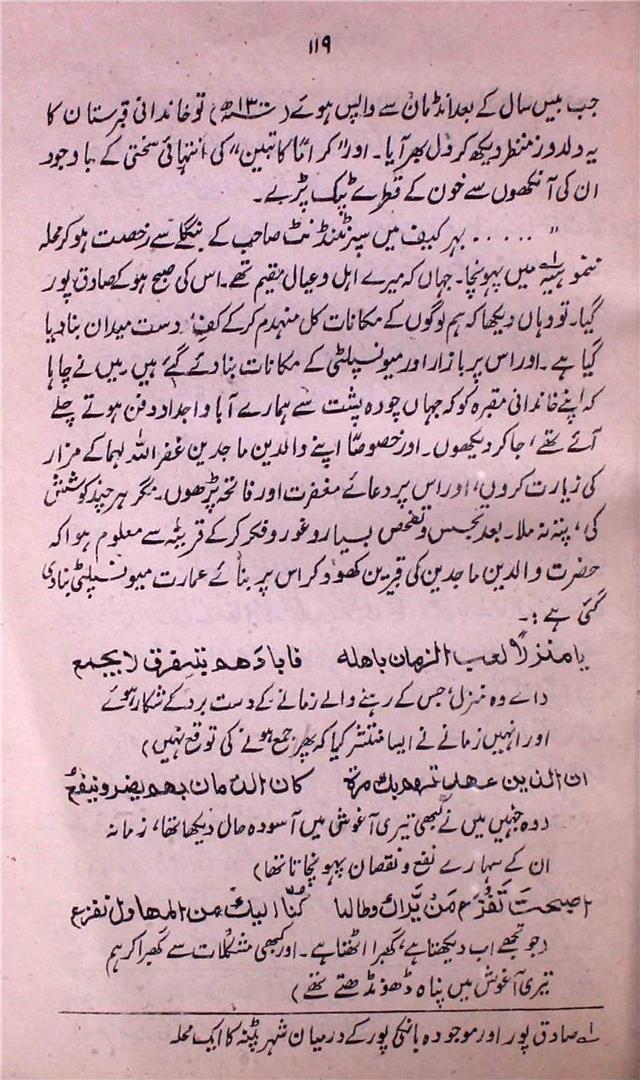 ۱۱۹
جب بیس سال کے بعد انڈمان سے واپس ہوئے (۱۳۰۰ھ) تو خاندانی قبرستان کا
یہ دلدوز منظر دیکھ کر دل بھر آیا۔ اور "کراماً کاتبین" کی انتہائی سختی کے باوجود
ان کی آنکھوں سے خون کے قطرے ٹپک پڑے۔
"..... بہر کیف میں سپرنٹنڈنٹ صاحب کے بنگلے سے رخصت ہو کر محلہ
ننموہیہ۱ میں پہونچا۔ جہاں کہ میرے اہل و عیال مقیم تھے۔ اس کی صبح ہو کے صادق پور
گیا۔ تو وہاں دیکھا کہ ہم لوگوں کے مکانات کل منہدم کرکے کفِ دست میدان بنا دیا
گیا ہے۔ اور اس پر بازار اور میونسپلٹی کے مکانات بنا دئے گئے ہیں میں نے چاہا
کہ اپنے خاندانی مقبرہ کو کہ جہاں چودہ پشت سے ہمارے آبا و اجداد دفن ہوتے چلے
آئے تھے، جاکر دیکھوں۔ اور خصوصاً اپنے والدین ماجدین غفر اللہ لہما کے مزار
کی زیارت کروں، اور اس پر دعائے مغفرت اور فاتحہ پڑھوں۔ مگر ہر چند کوشش
کی، پتہ نہ ملا۔ بعد تجسس و تفحص بسیار و غور و فکر کرکے قرینہ سے معلوم ہوا کہ
حضرت والدین ماجدین کی قبریں کھود کر اس پر بنائے عمارت میونسپلٹی بنا دی
گئی ہے:۔
یا منزلاً لعب الزمان باھلہ فابادھم بتفرق لا یجمع
(اے وہ منزل جس کے رہنے والے زمانے کے دست برد کے شکار ہوئے
اور انہیں زمانے نے ایسا منتشر کیا کہ پھر جمع ہونے کی توقع نہیں)
ان الذین عھدتھم بک مرۃ کان الزمان بھم یضر و ینفع
(وہ جنہیں میں نے کبھی تیری آغوش میں آسودہ حال دیکھا تھا، زمانہ
ان کے سہارے نفع و نقصان پہونچاتا تھا)
اصبحت تَفْزَع مَنْ یَّراک و طالما کُنّا الیک من المھاول نفزع
(جو تجھے اب دیکھتا ہے، گھبرا اٹھتا ہے۔ اور کبھی مشکلات سے گھبرا کر ہم
تیری آغوش میں پناہ ڈھونڈھتے تھے)
۱ صادق پور اور موجودہ بانکی پور کے درمیان شہر پٹنہ کا ایک محلہ